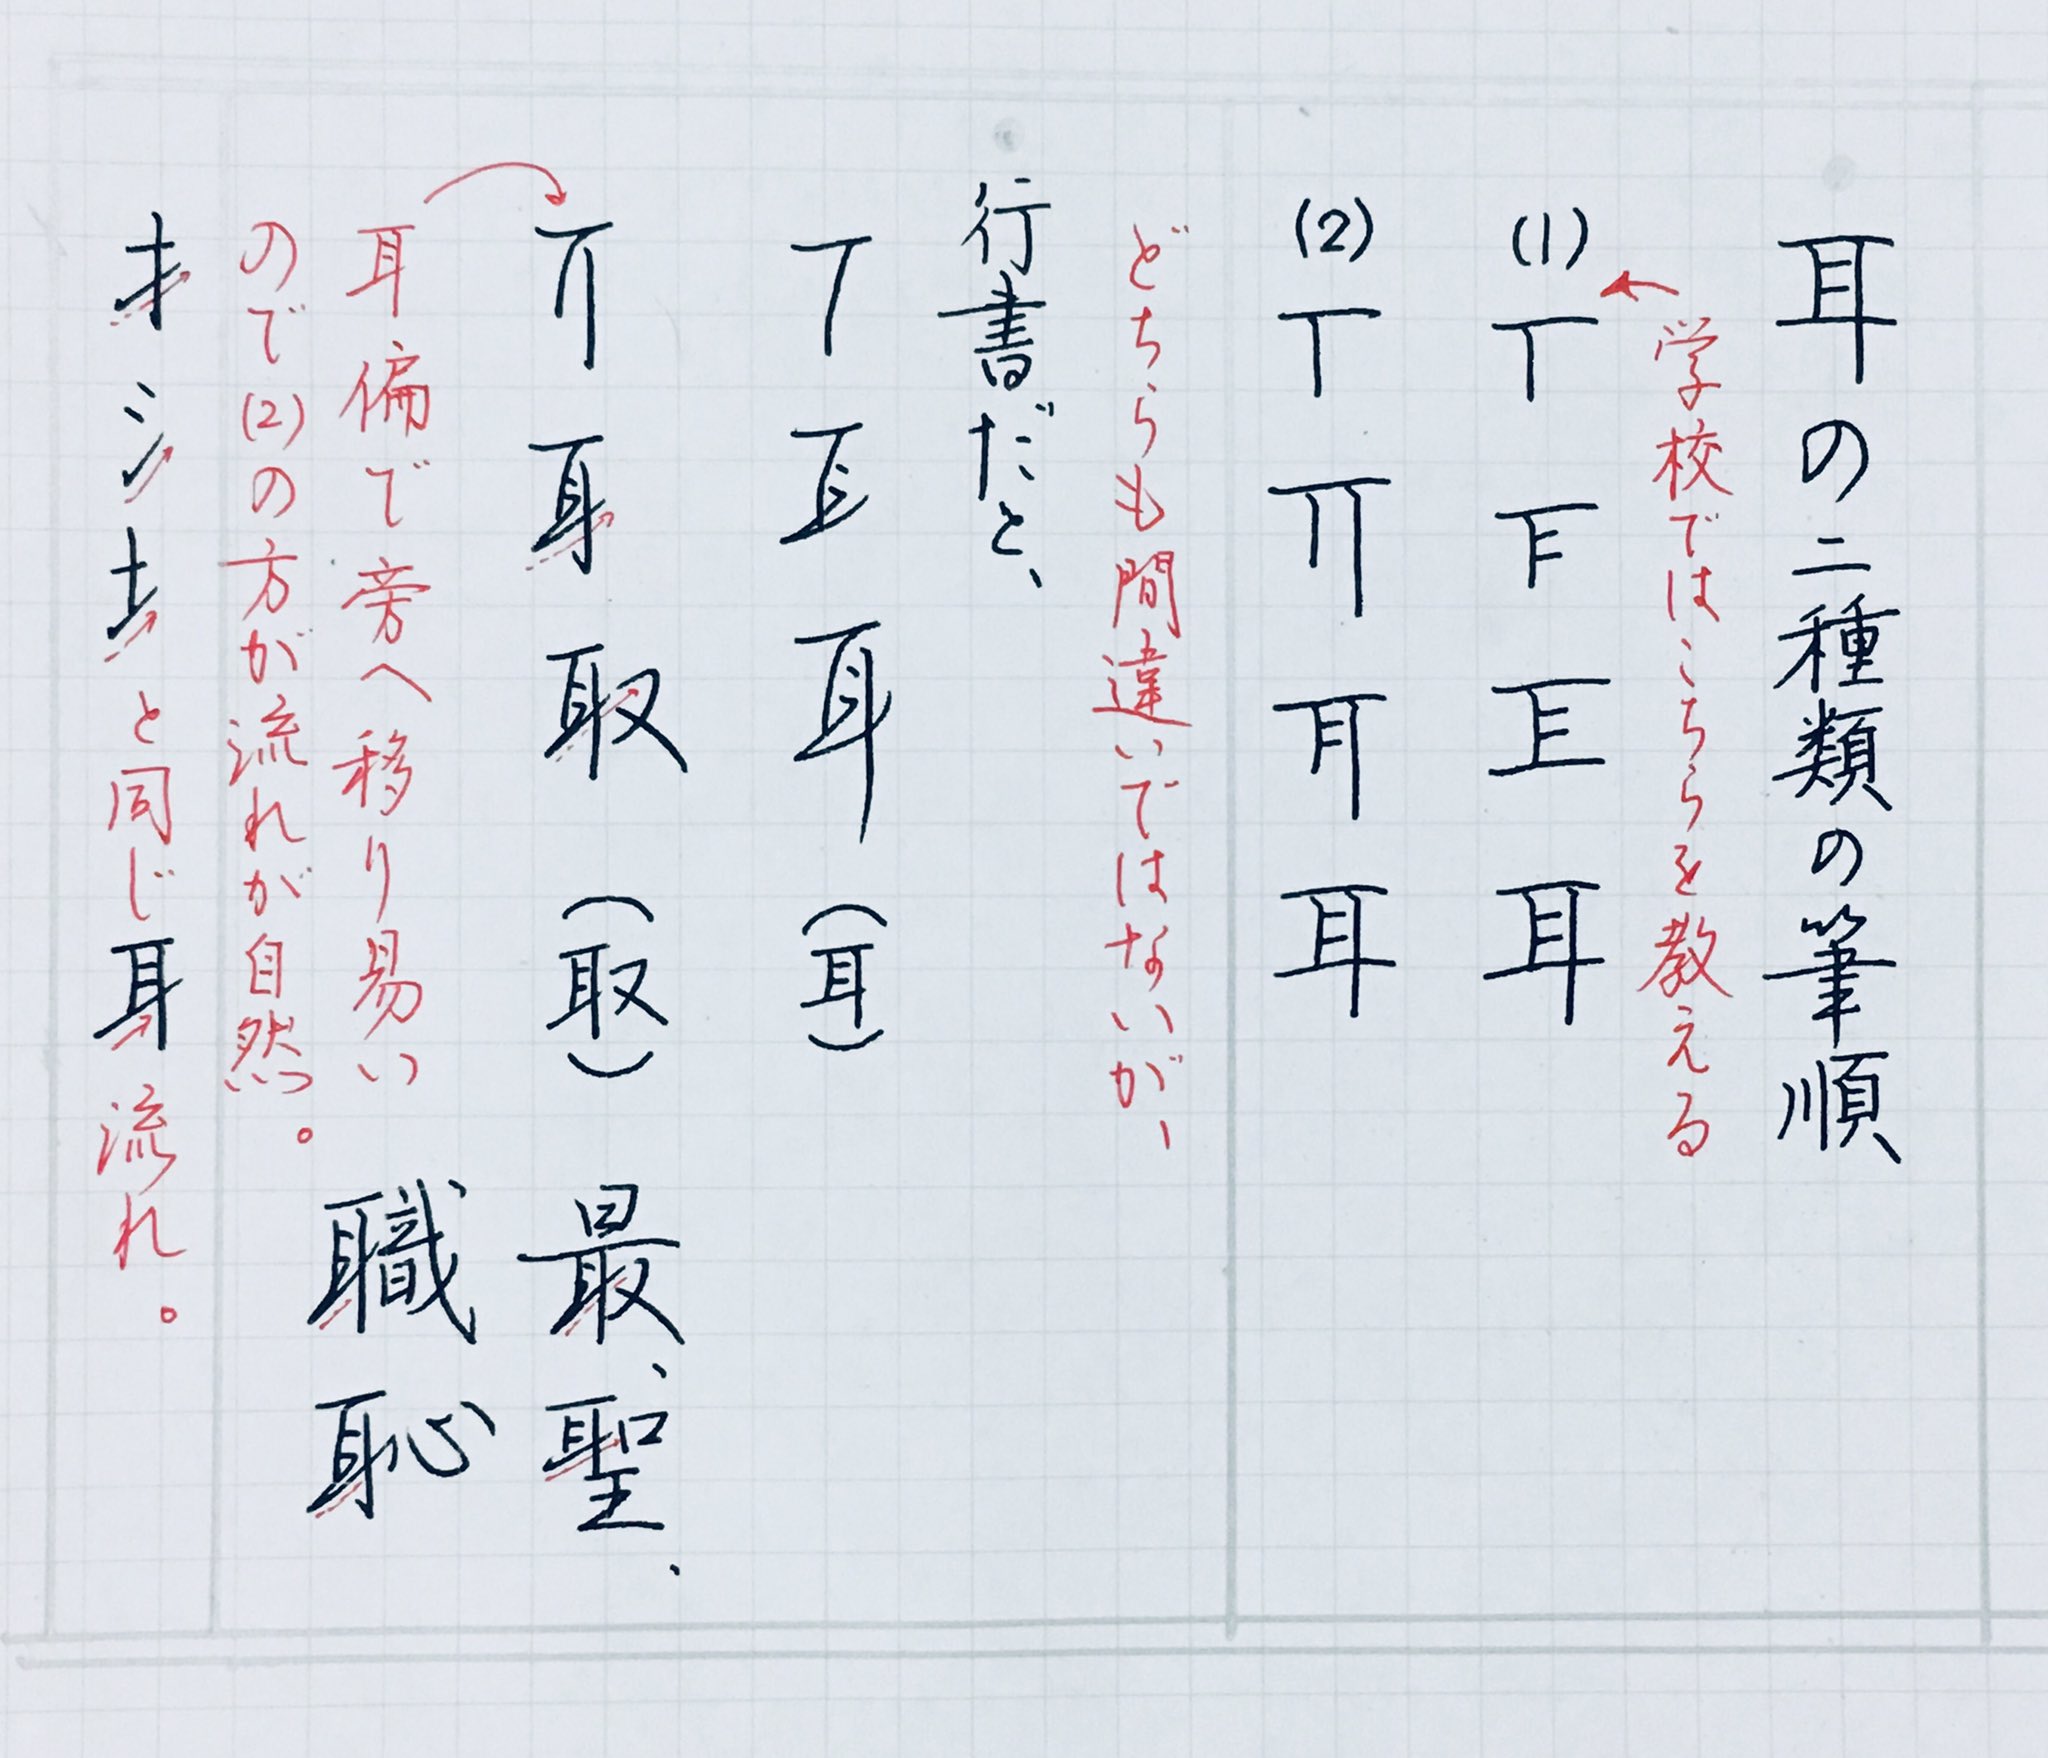 耳の二種類の筆順
学校ではこちらを教える
(1) 耳
(2) 耳
どちらも間違いではないが、
行書だと、
耳 (耳)
耳 取 (取) 最、聖、
耳偏で旁へ移り易い 職 恥
ので(2)の方が流れが自然。
扌 氵 土 と同じ 耳 流れ。